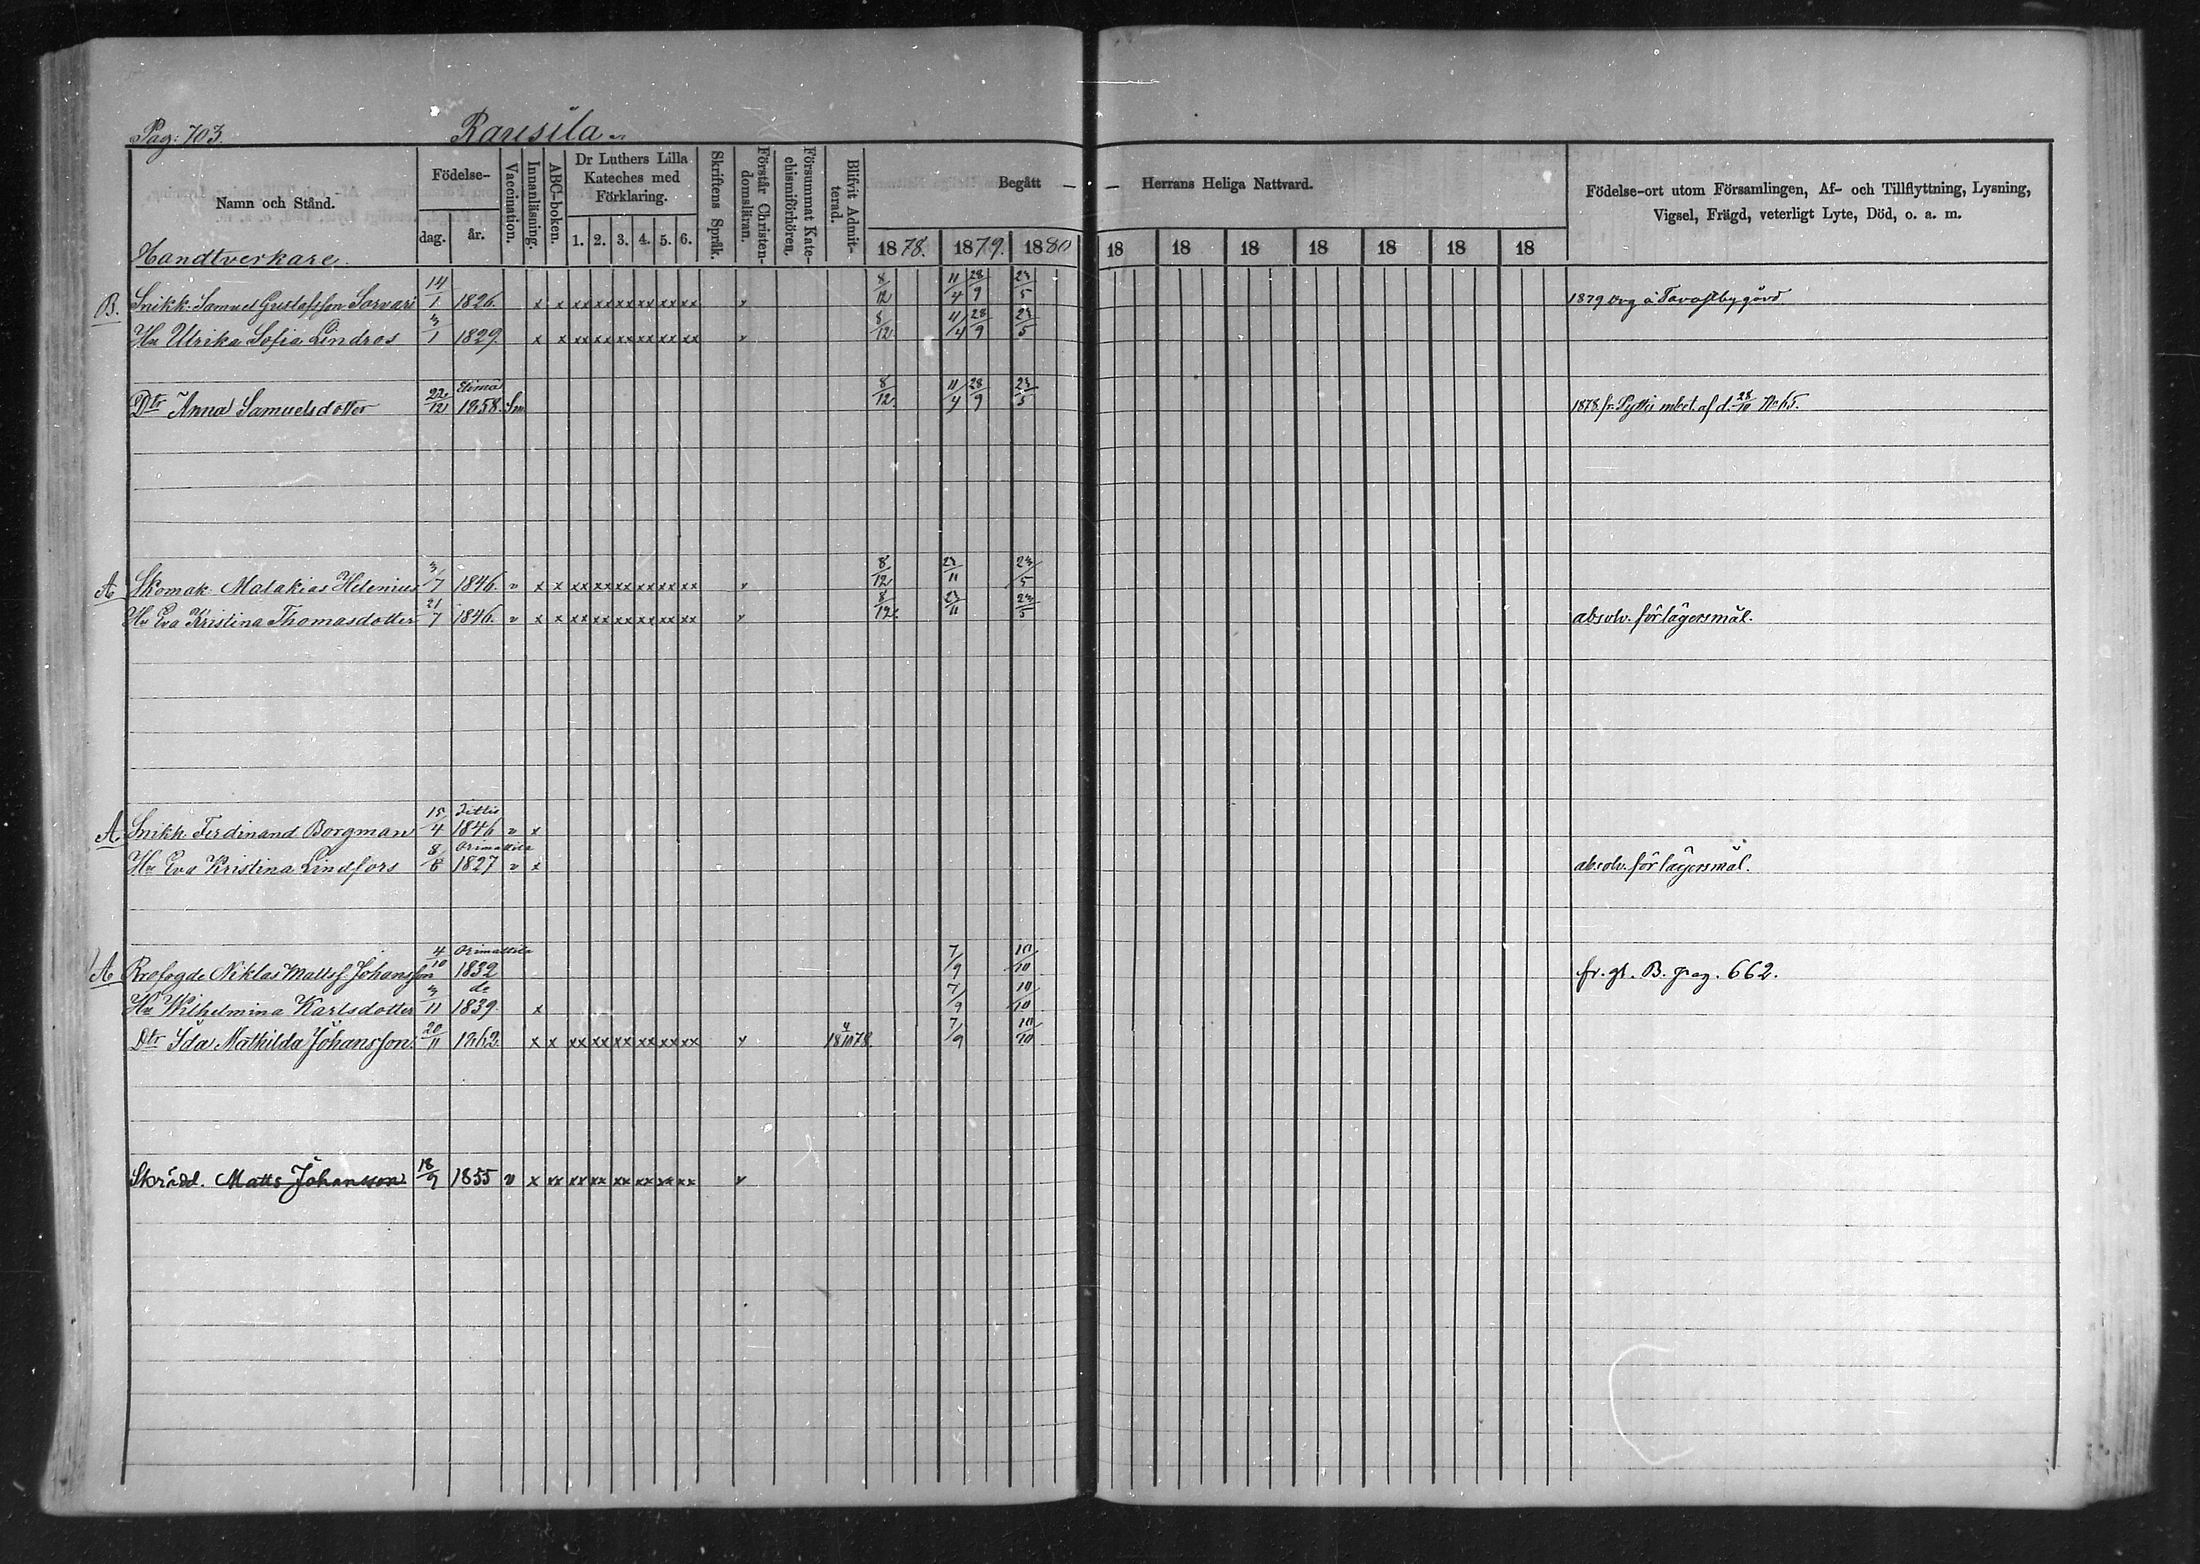 Pag: 703. Rausila
Namn och Stånd. Födelse- dag. år. Vaccination. Innanläsning. ABC-boken. Dr Luthers Lilla Kateches med Förklaring. 1. 2. 3. 4. 5. 6. Skriftens Språk. Förstår Christendomsläran. Försummat Katechismiförhören. Blifvit Admitterad. Begått — — Herrans Heliga Nattvard. Födelse-ort utom Församlingen, Af- och Tillflyttning, Lysning, Vigsel, Frägd, veterligt Lyte, Död, o. a. m.
1878. 1879. 1880 18 18 18 18 18 18 18
Handtverkare.
B. Snikk. Samuel Gustafsson Sorvari 14/1 1826. x x xx xx xx xx xx xx v 8/12 11/4 28/9 23/5 1879
Hu Ulrika Sofia Lindros 3/1 1829. x x xx xx xx xx xx xx v 8/12 11/4 28/9 23/5
Elimä
Dtr Anna Samuelsdotter 22/12 1858. 8/12. 11/4 28/9 23/5 1878 fr. Pyttis mbet. af d. 28/10 No 65.
A Skomak. Malakias Helenius 3/7 1846. v x x xx xx xx xx xx xx v 8/12 23/11 23/5
Hu Eva Kristina Thomasdotter 21/7 1846. v x x xx xx xx xx xx xx v 8/12. 23/11 23/5 absolv. för lägersmål.
Jittis
A Snikk. Ferdinand Borgman 15/4 1846 v x
Orimattila
Hu Eva Kristina Lindfors 1827 v x absolv. för lägersmål.
Orimattila
A Rofogde Niklas Mattsf. Johansson 4/10 1832 7/9 10/10 fr. gl. B. pag. 662.
de
Hu Wilhelmina Karlsdotter 3/11 1839. x 7/9 10/10
Dtr Ida Mathilda Johansson. 20/11 1862. x x xx xx xx xx xx xx v 18 4/10 78. 7/9 10/10
Skrädd. Matts Johansson 18/9 1855 v x xx xx xx xx xx xx xx v